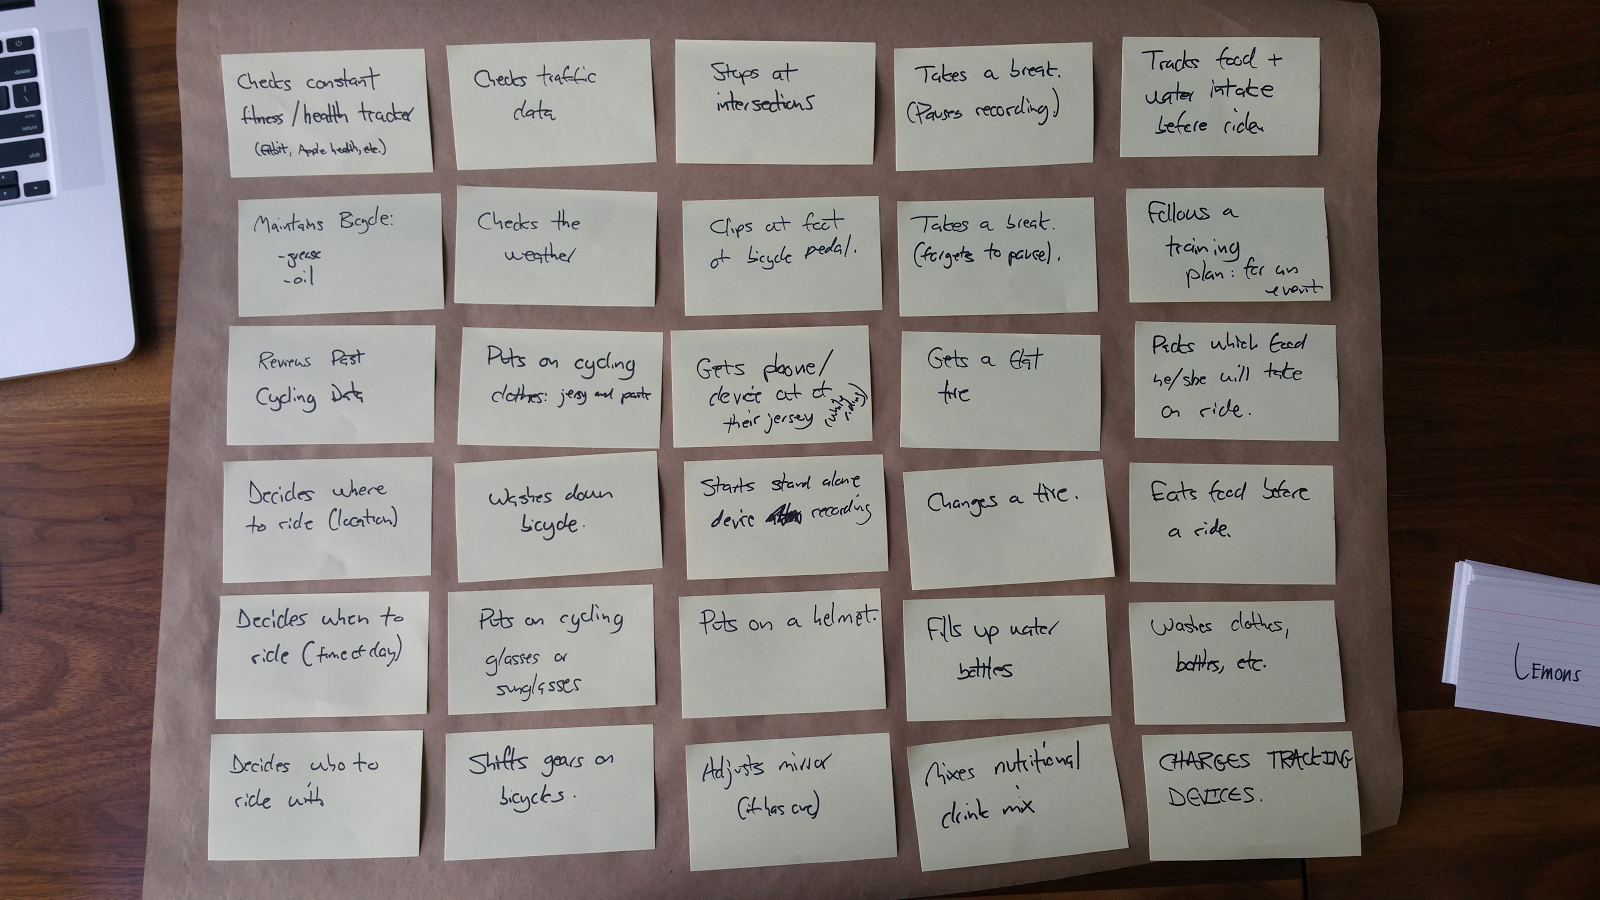 Checks constant
fitness / health tracker
(Fitbit, Apple health, etc.)
Checks traffic
data
Stops at
intersections
Takes a break.
(Pauses recording)
Tracks food +
water intake
before ride
Maintains Bicycle:
- grease
- oil
Checks the
weather
Clips at foot
of bicycle pedal.
Takes a break.
(forgets to pause).
Follows a
training
plan: for an
event
Reviews Past
Cycling Data
Puts on cycling
clothes: jersey and pants
Gets phone/
device out of
their jersey
Gets a flat
tire
Picks which food
he/she will take
on ride.
Decides where
to ride (location)
Washes down
bicycle.
Starts stand alone
device recording
Changes a tire.
Eats food before
a ride.
Decides when to
ride (time of day)
Puts on cycling
glasses or
sunglasses
Puts on a helmet.
Fills up water
bottles
Washes clothes,
bottles, etc.
Decides who to
ride with
Shifts gears on
bicycles.
Adjusts mirror
(if has one)
Mixes nutritional
drink mix
CHARGES TRACKING
DEVICES.
LEMONS
delete
enter
return
shift